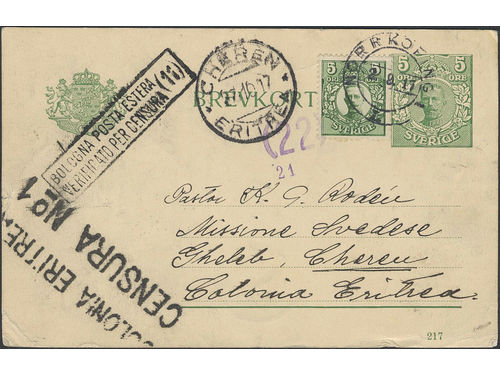 BREVKORT
5 5
ÖRE ÖRE
SVERIGE
5 5
ÖRE ÖRE
SVERIGE
NORRKÖPING
CHEREN
ERITREA
BOLOGNA POSTA ESTERA
VERIFICATO PER CENSURA (11)
(22)
21
COLONIA ERITREA
CENSURA Nº 1
Pastor K. G. Rodén
Missione Svedese
Gheleb, Cheren
Colonia Eritrea.
217